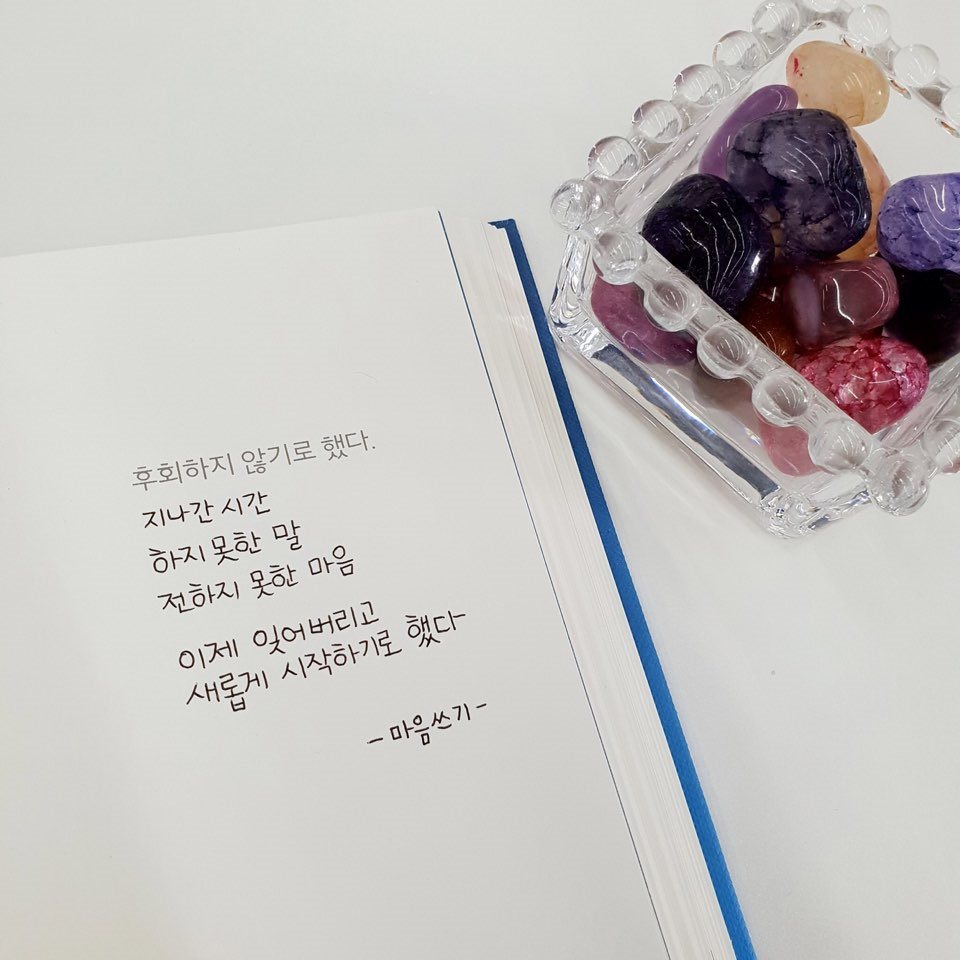 후회하지 않기로 했다.
지나간 시간
하지 못한 말
전하지 못한 마음
이제 잊어버리고
새롭게 시작하기로 했다
- 마음쓰기 -